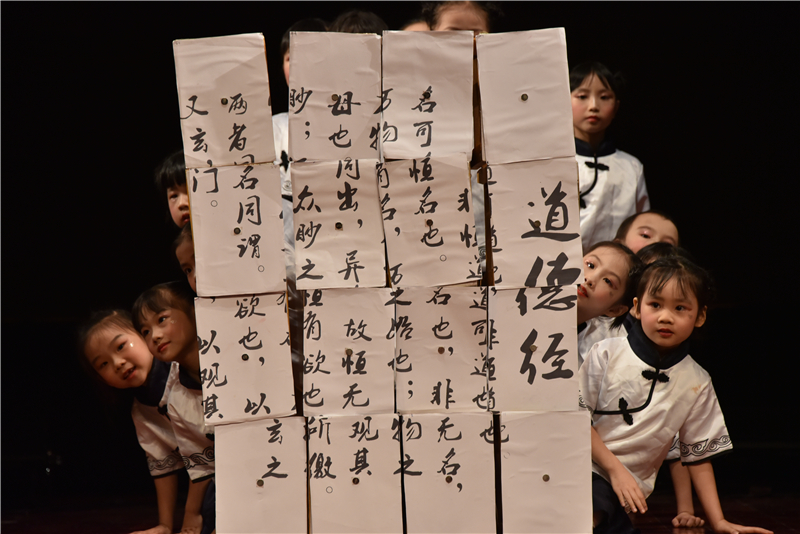 道德经
名可恒名也。名也，非无名，
万物有名，万之始也；物之
母也同出，异故恒无观其
眇；众眇之恒有欲也所徼。
两者同名同谓。欲也，以玄之
又玄，门。以观其